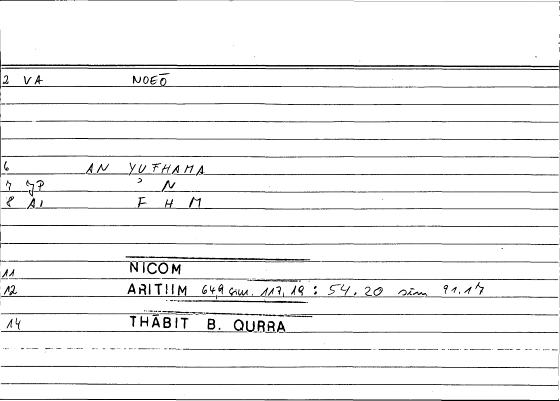 2 VA NOEŌ
6 AN YUFHAMA
7 JP ʾ N
8 AI F H M
11 NICOM
12 ARITIIM 649, 117, 19 : 54.20 sim 91.17
14 THĀBIT B. QURRA